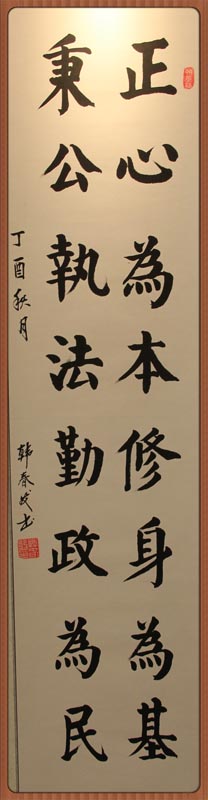 正心為本修身為基
秉公執法勤政為民
丁酉秋月
韩春茂书